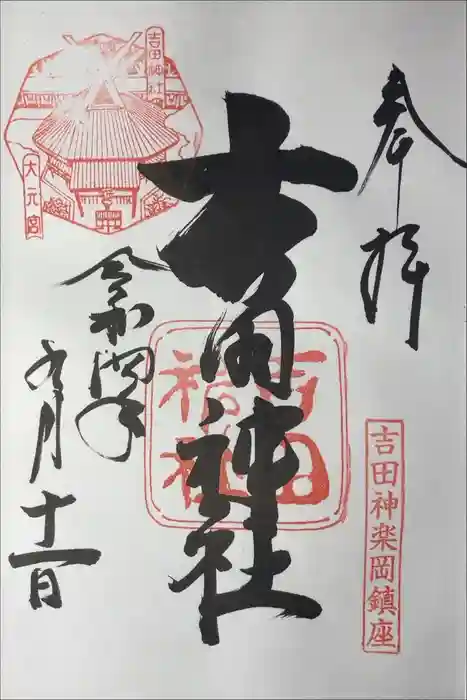 奉拝
吉田神楽岡鎮座
吉田神社
吉田
神社
吉田神社
大元宮
令和四年
九月十一日